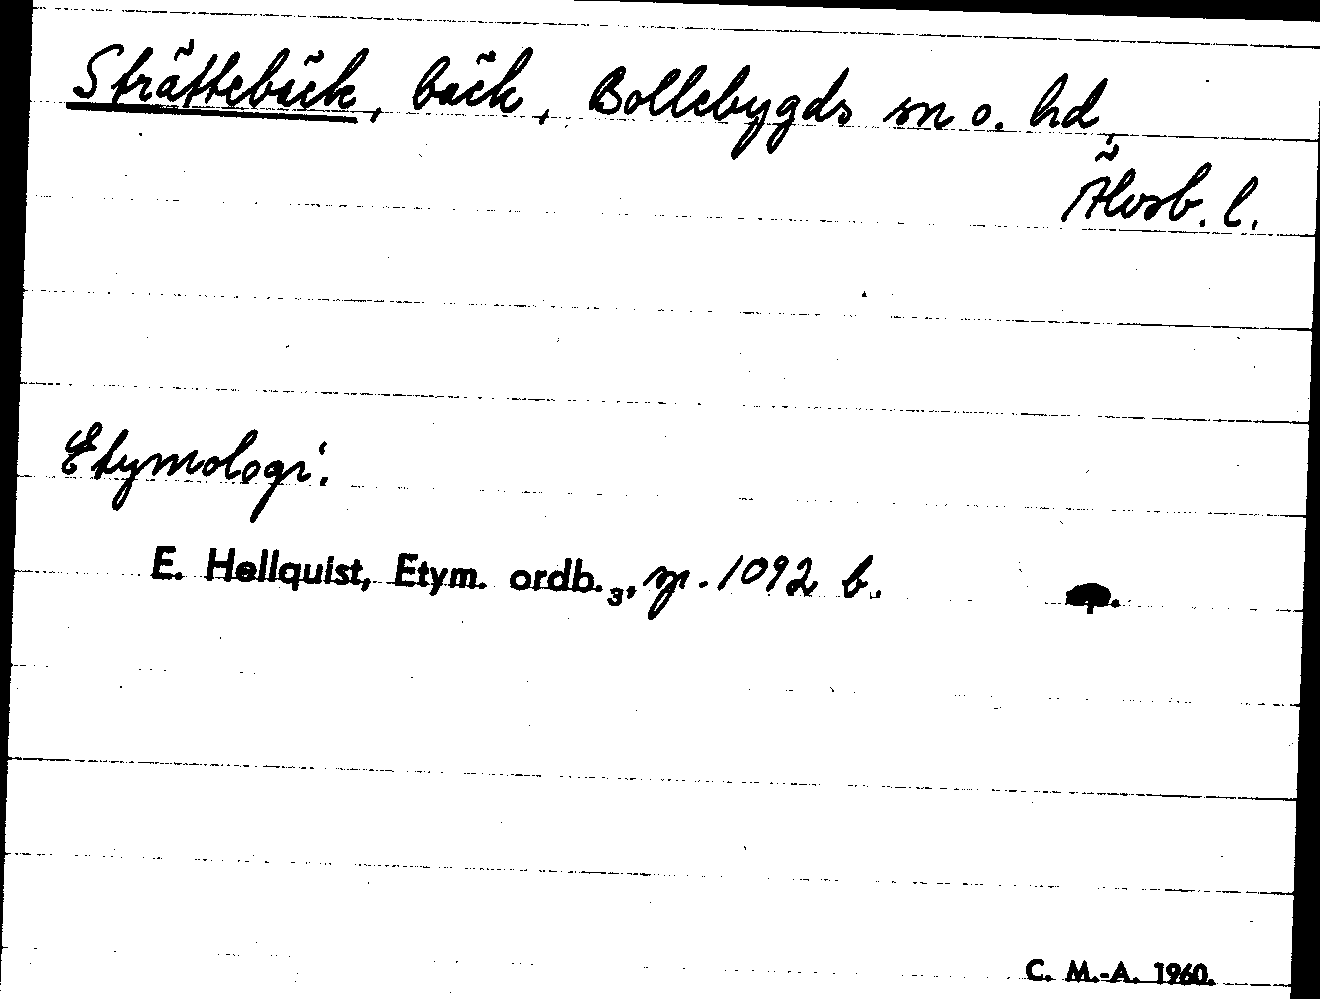 Strättebäck, bäck, Bollebygds sn o. hd,
Älvsb. l.
Etymologi:
E. Hellquist, Etym. ordb.₃, sp. 1092 b.
C. M.-A. 1960.